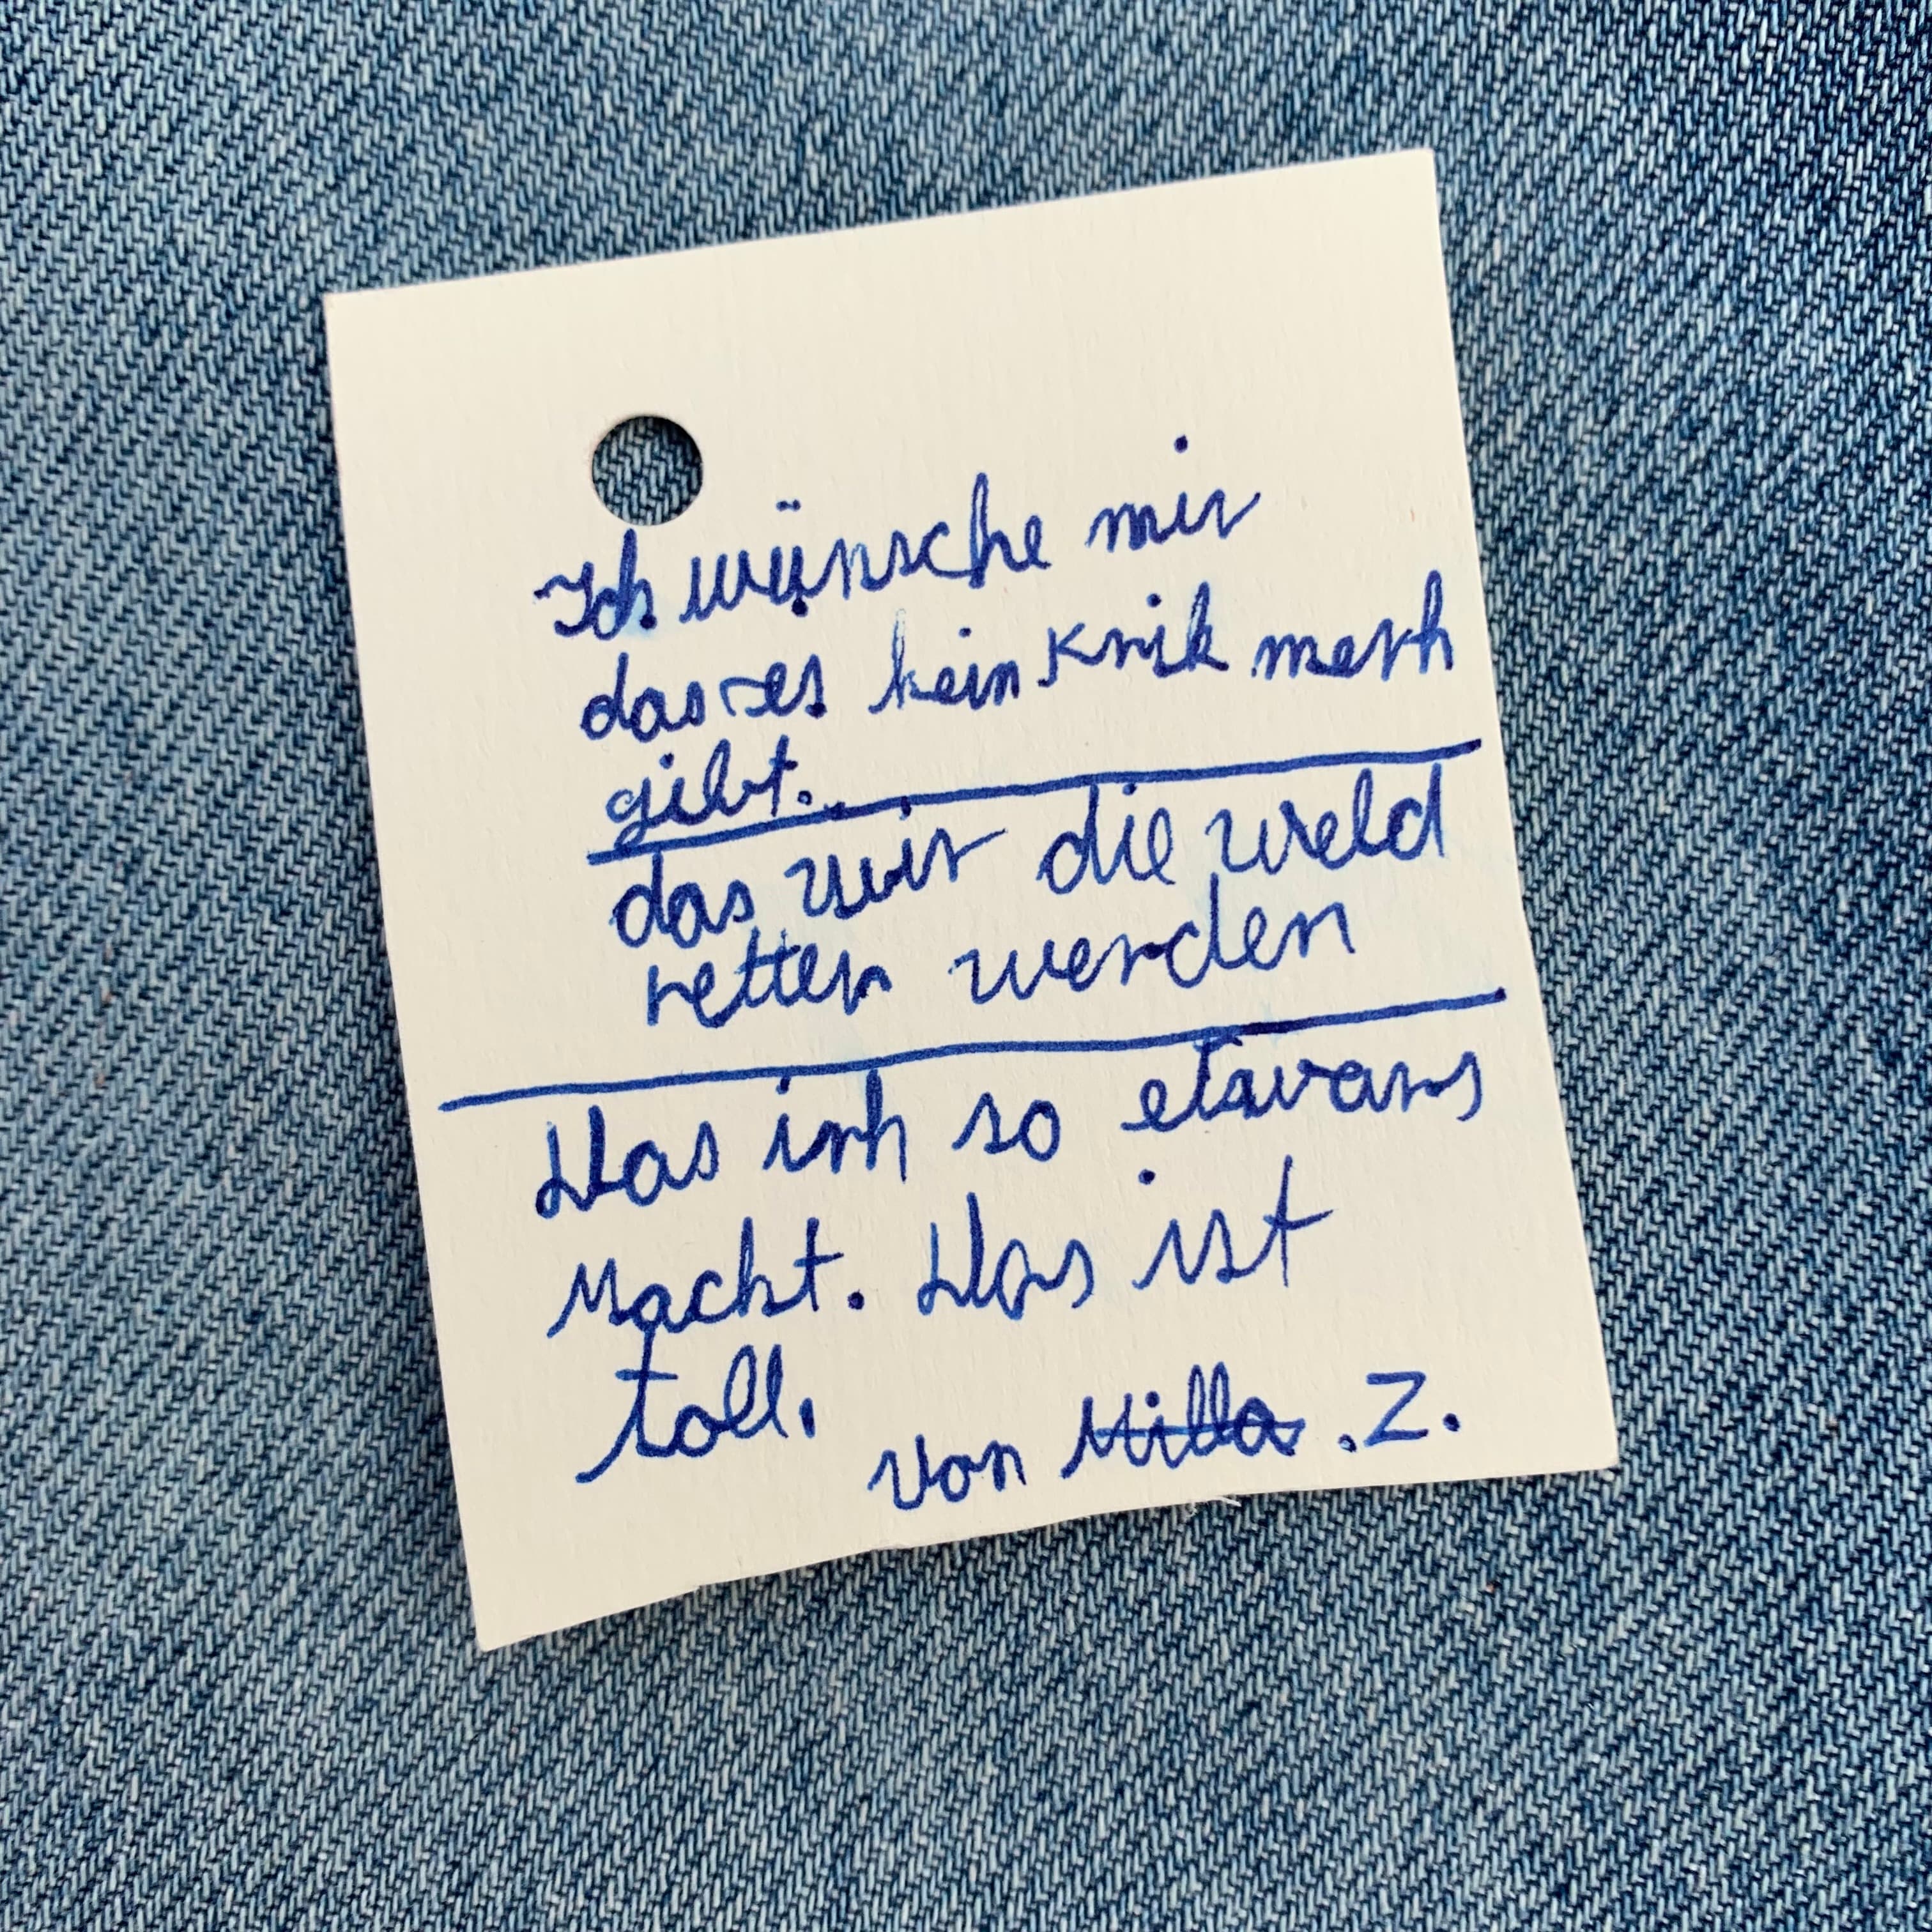 Ich wünsche mir
das es kein Krik merh
gibt.
das wir die weld
retten werden
Das irh so etwars
Macht. Das ist
toll.
von Milla .Z.